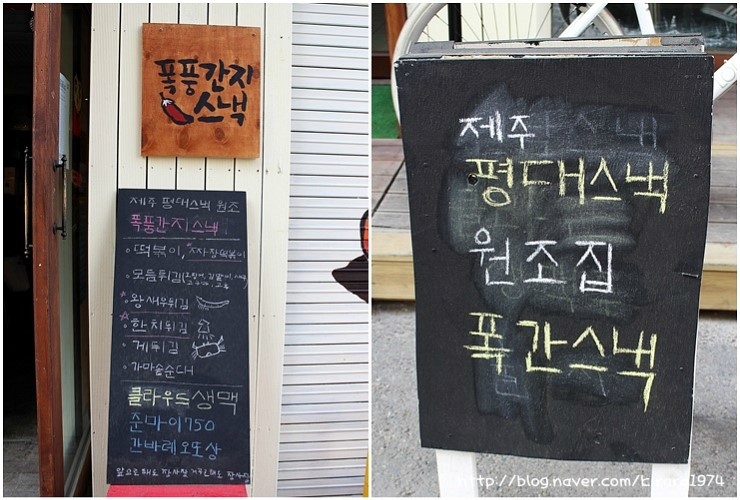 폭풍간지
스낵
제주 평대스낵 원조
폭풍간지스낵
떡볶이, 짜장떡볶이
모듬튀김(오징어, 김말이, 야채
왕새우튀김
한치튀김
게튀김
가마솥순대
클라우드생맥
준마이750
간바레오또상
제주
평대스낵
원조집
폭간스낵
http://blog.naver.com/
1974